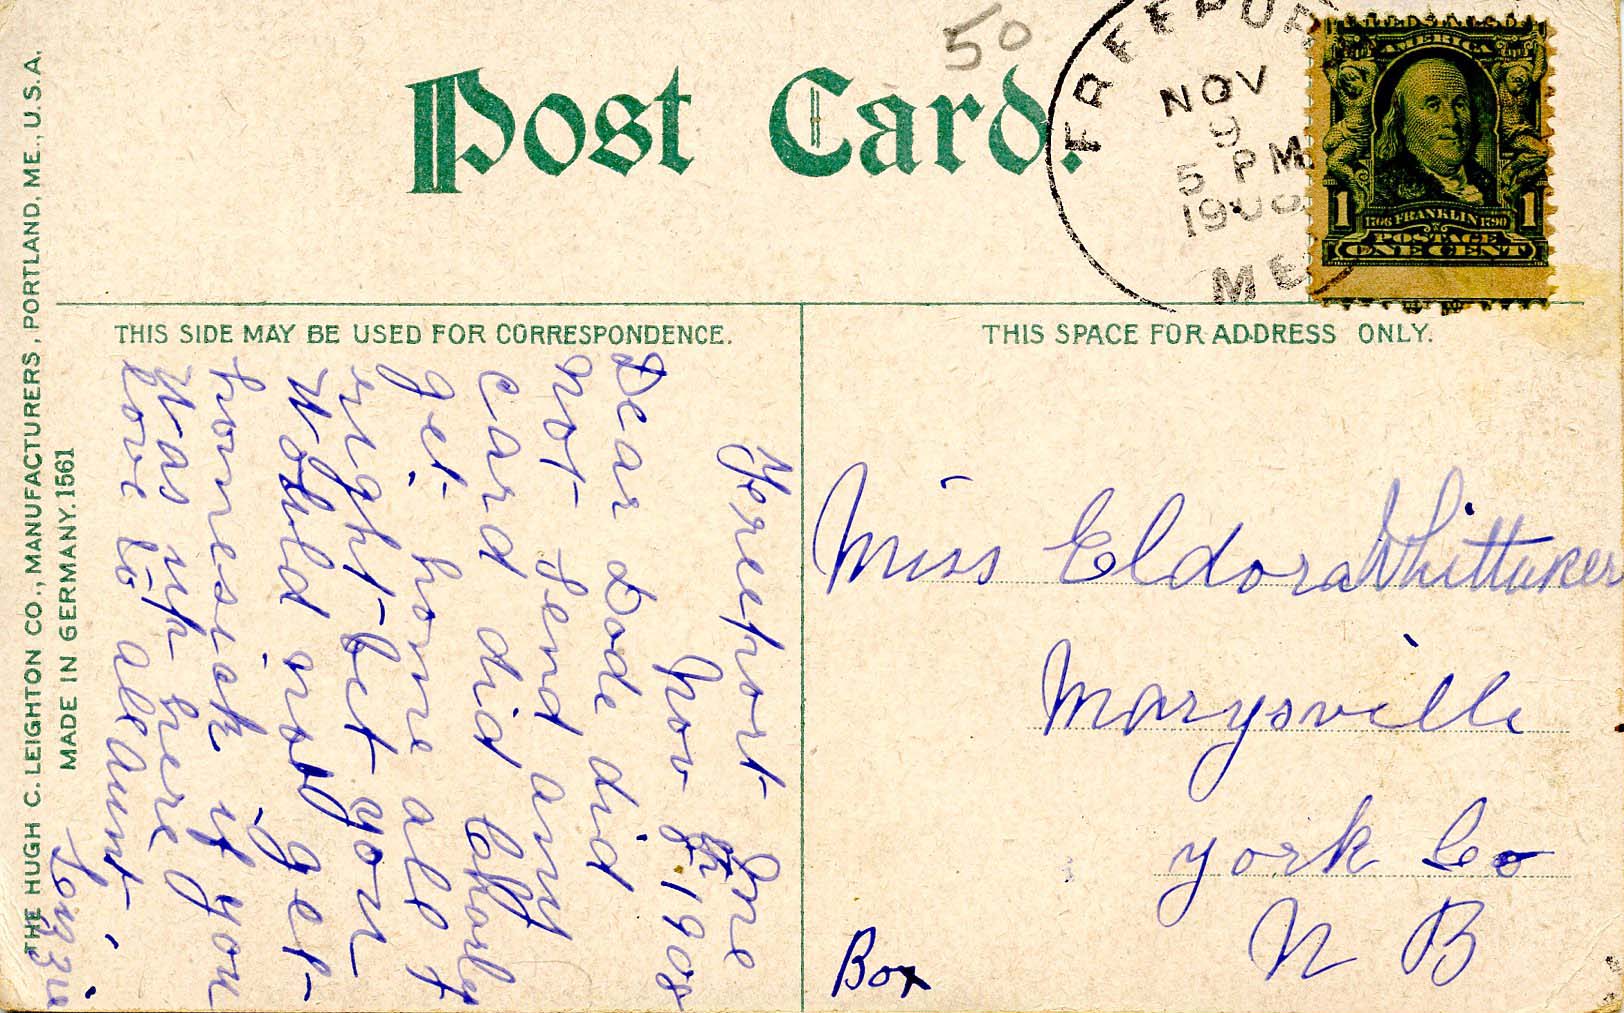 50
Post Card.
FREEPORT
NOV
9
5 PM
1908
ME
UNITED STATES OF
AMERICA
1 1706 FRANKLIN 1790 1
POSTAGE
ONE CENT
THE HUGH C. LEIGHTON CO., MANUFACTURERS, PORTLAND, ME., U.S.A.
MADE IN GERMANY. 1561
THIS SIDE MAY BE USED FOR CORRESPONDENCE.
Fereeport Me
Nov 1908
Dear Dode did
not send any
card did
get home all
rught bet you
Would not get
homesick if you
Was up here
love to all aunt
Lizzie
THIS SPACE FOR ADDRESS ONLY.
Miss Eldora Whittaker
Marysville
york Co
N B
Box